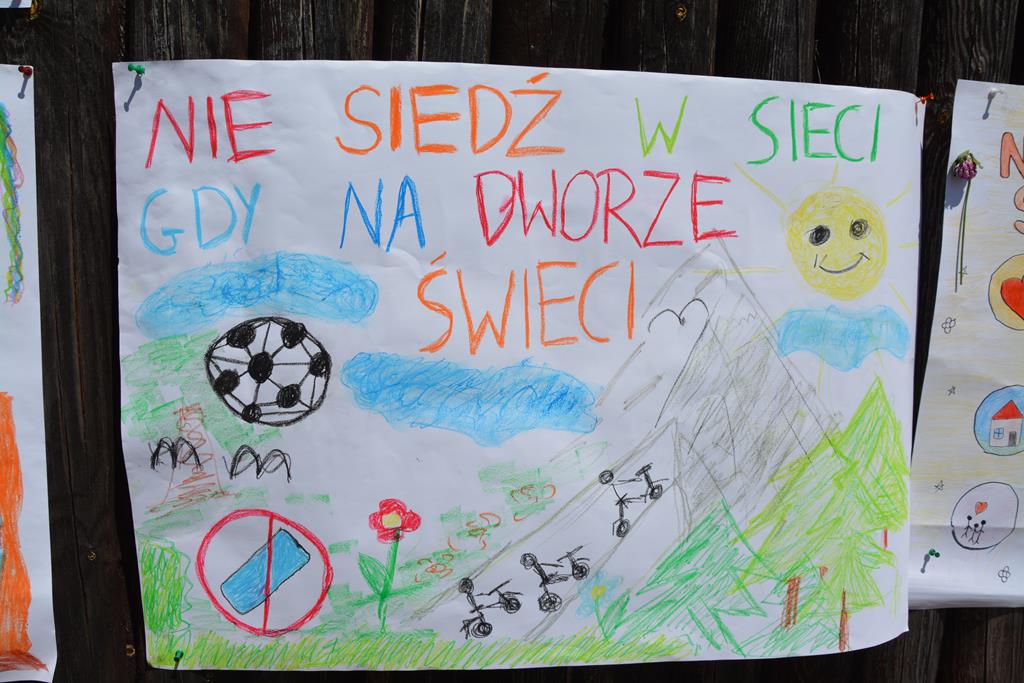 NIE SIEDŹ W SIECI
GDY NA DWORZE
ŚWIECI